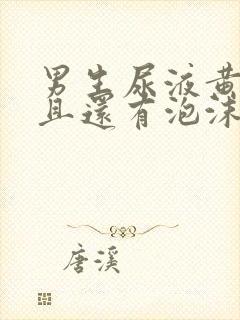 男生尿液黄
且还有泡沫
唐溪